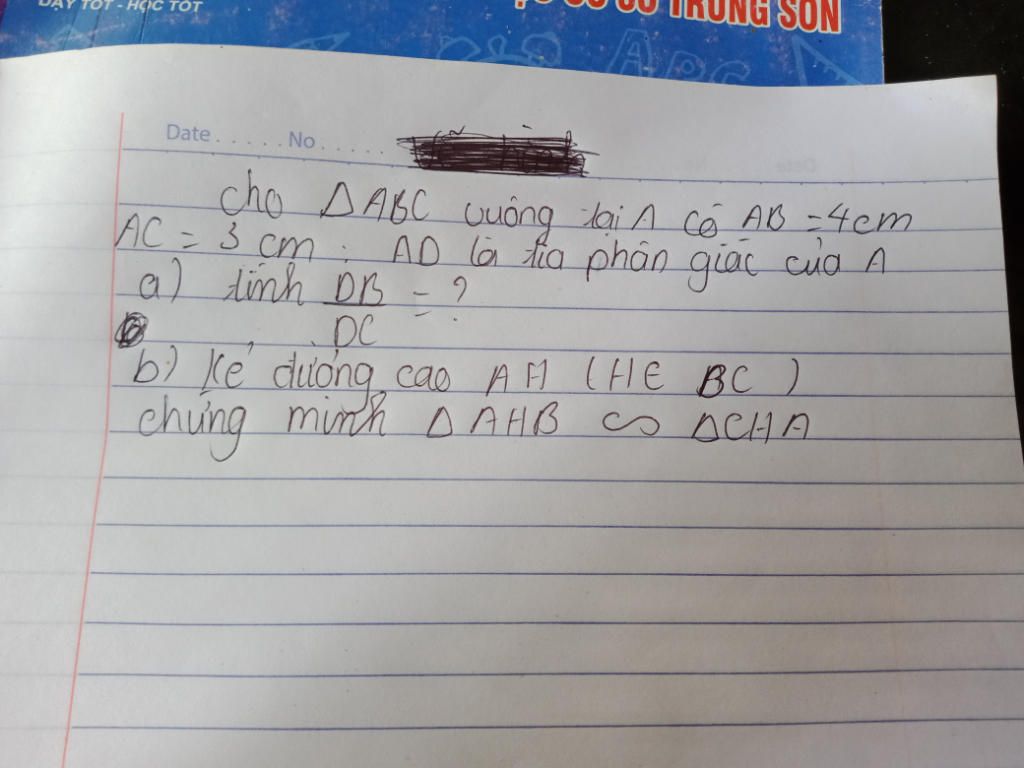 DẠY TỐT - HỌC TỐT
TRUNG SƠN
Date ..... No .....
cho ΔABC vuông tại A có AB = 4cm
AC = 3 cm ; AD là tia phân giác của A
a) tính DB/DC = ?
b) Kẻ đường cao AH (H∈ BC)
chứng minh ΔAHB ∽ ΔCHA